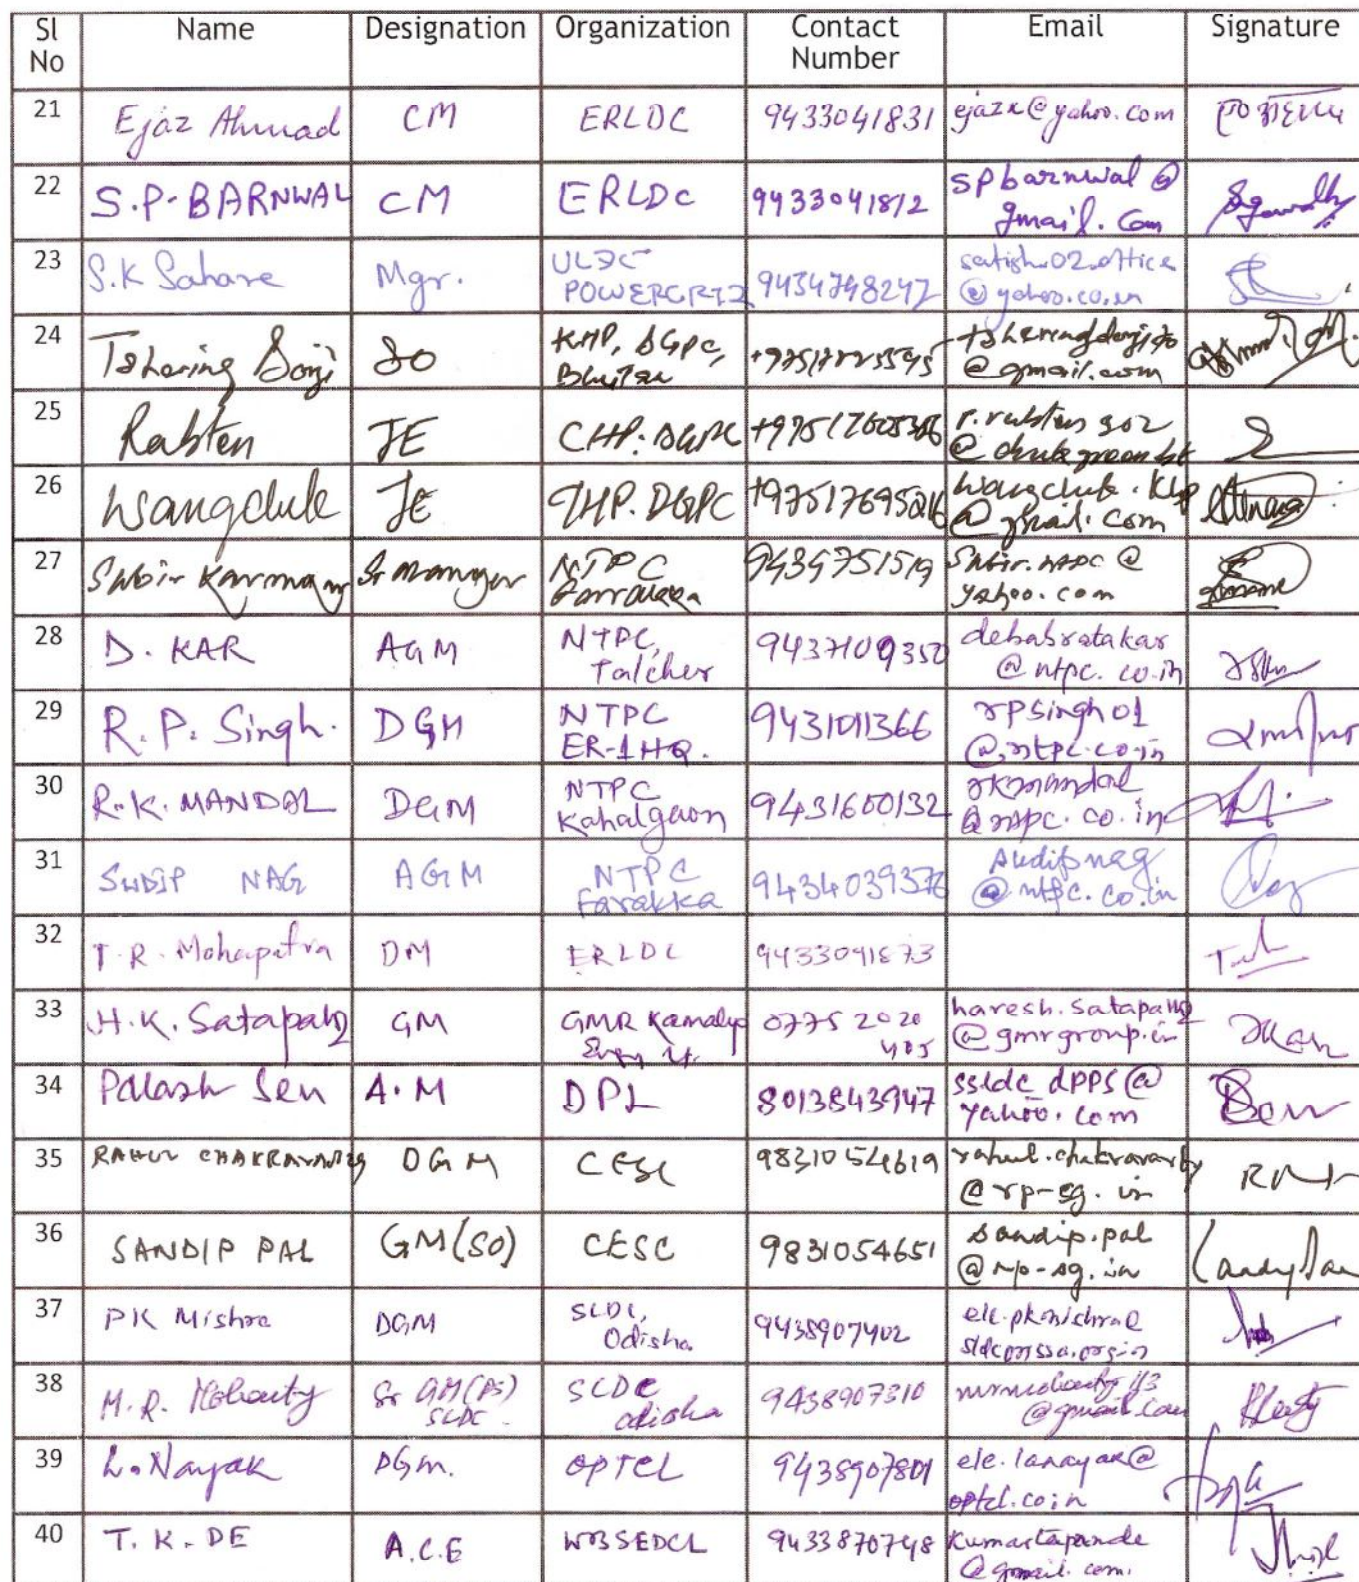 Sl No Name Designation Organization Contact Number Email Signature
21 Ejaz Ahmad CM ERLDC 9433041831 ejazx@yahoo.com
22 S.P. BARNWAL CM ERLDC 9433041812 spbarnwal@
gmail.com
23 S.K Sahare Mgr. ULDC
POWERGRID 9434748247 satish.02.office
@yahoo.co.in
24 Tshering Dorji SO KHP, DGPC,
Bhutan
@gmail.com
25 Rabten JE CHP. DGPC
26 Wangchuk JE THP. DGPC wangchuk.khp
@gmail.com
27 Subir Karmakar Sr manager NTPC
Farrakka 9434751519 Subir.ntpc@
yahoo.com
28 D. KAR AGM NTPC,
Talcher 9437109350 debabratakar
@ntpc.co.in
29 R.P. Singh. DGM NTPC
ER-1 HQ. 9431011366 rpsingh01
@ntpc.co.in
30 R.K. MANDAL DGM NTPC
Kahalgaon 9431600132 rkmandal
@ntpc.co.in
31 SUDIP NAG AGM NTPC
Farakka 9434039376 sudipnag
@ntpc.co.in
32 T.R. Mohapatra DM ERLDC 9433041873
33 H.K. Satapathy GM GMR Kamalga
0775 2020 haresh.satapathy
@gmrgroup.in
34 Palash Sen A.M DPL 8013843947 ssldc_dpps@
yahoo.com
35 RAHUL CHAKRAVARTY DGM CESC 9831054619 rahul.chakravarty
@rp-sg.in
36 SANDIP PAL GM(SO) CESC 9831054651 sandip.pal
@rp-sg.in
37 PK Mishra DGM SLDC,
Odisha 9438907402 ele.pkmishra@
sldcorissa.org.in
38 M.R. Mohanty Sr GM(PS)
SLDC. SLDC
Odisha 9438907310
@gmail.com
39 L. Nayak DGM. OPTCL 9438907801 ele.lanayak@
optcl.co.in
40 T. K. DE A.C.E WBSEDCL 9433870748 kumartapande
@gmail.com.